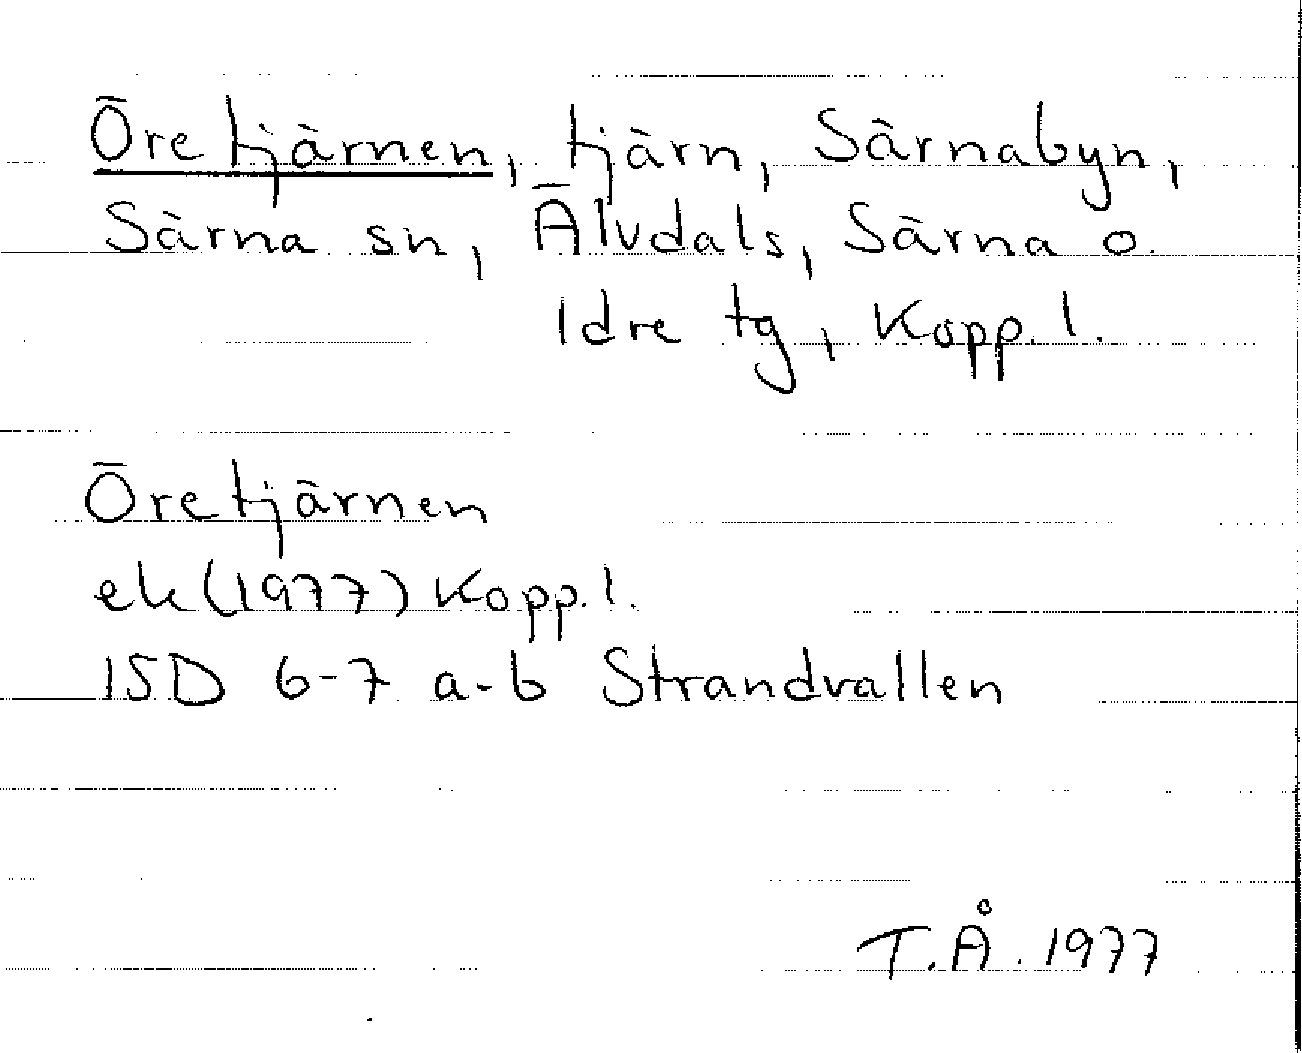 Öretjärnen, tjärn, Särnabyn,
Särna sn, Älvdals, Särna o.
Idre tg, Kopp. l.
Öretjärnen
ek (1977) Kopp. l.
15D 6-7 a-b Strandvallen
T.Å. 1977